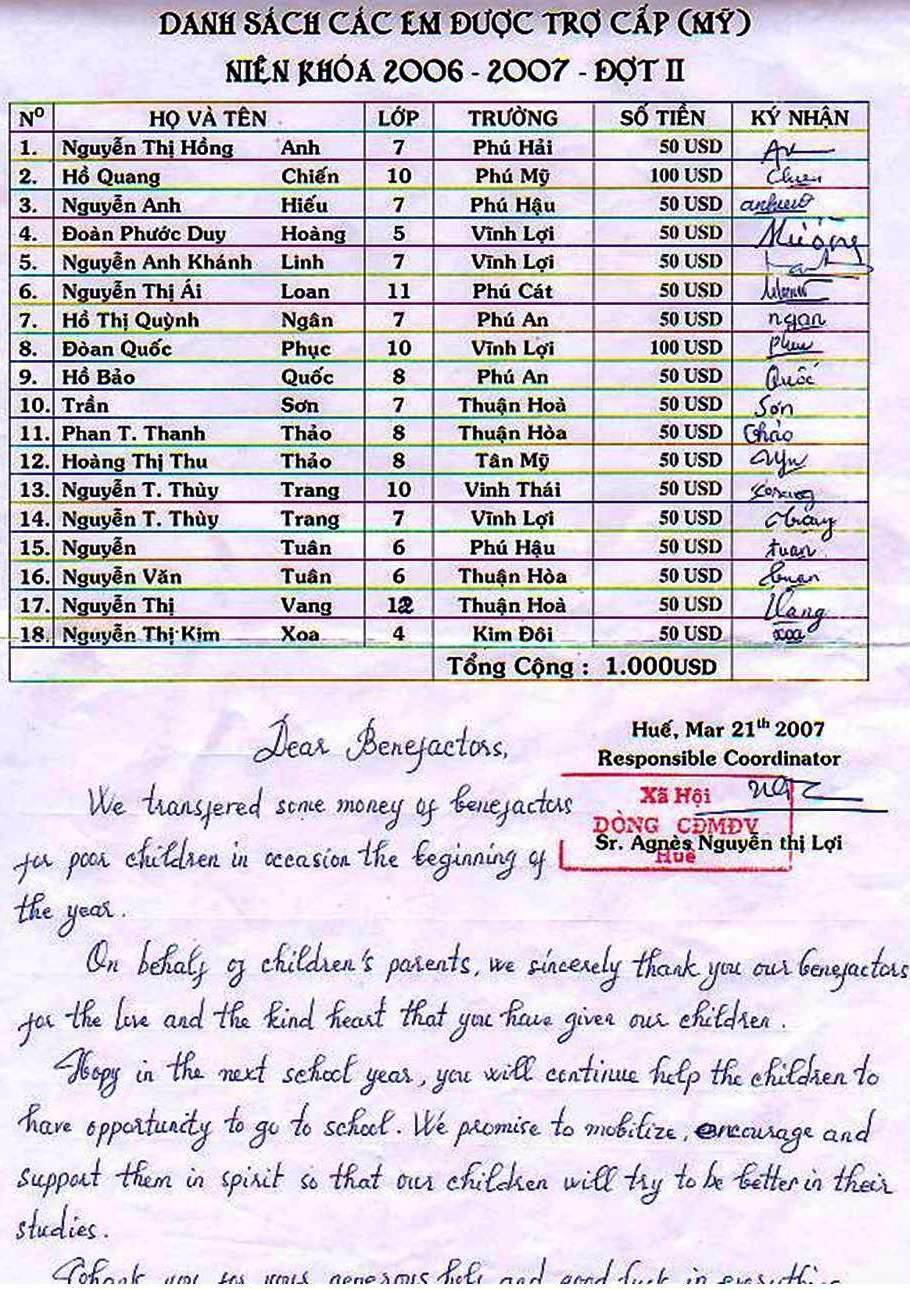 DANH SÁCH CÁC EM ĐƯỢC TRỢ CẤP (MỸ)
NIÊN KHÓA 2006 - 2007 - ĐỢT II
Nº HỌ VÀ TÊN LỚP TRƯỜNG SỐ TIỀN KÝ NHẬN
1. Nguyễn Thị Hồng Anh 7 Phú Hải 50 USD
2. Hồ Quang Chiến 10 Phú Mỹ 100 USD
3. Nguyễn Anh Hiếu 7 Phú Hậu 50 USD
4. Đoàn Phước Duy Hoàng 5 Vĩnh Lợi 50 USD
5. Nguyễn Anh Khánh Linh 7 Vĩnh Lợi 50 USD
6. Nguyễn Thị Ái Loan 11 Phú Cát 50 USD
7. Hồ Thị Quỳnh Ngân 7 Phú An 50 USD ngan
8. Đòan Quốc Phục 10 Vĩnh Lợi 100 USD
9. Hồ Bảo Quốc 8 Phú An 50 USD Quốc
10. Trần Sơn 7 Thuận Hoà 50 USD Sơn
11. Phan T. Thanh Thảo 8 Thuận Hòa 50 USD Thảo
12. Hoàng Thị Thu Thảo 8 Tân Mỹ 50 USD
13. Nguyễn T. Thùy Trang 10 Vinh Thái 50 USD
14. Nguyễn T. Thùy Trang 7 Vĩnh Lợi 50 USD
15. Nguyễn Tuân 6 Phú Hậu 50 USD tuan
16. Nguyễn Văn Tuân 6 Thuận Hòa 50 USD
17. Nguyễn Thị Vang 12 Thuận Hoà 50 USD Vang
18. Nguyễn Thị Kim Xoa 4 Kim Đôi 50 USD xoa
Tổng Cộng : 1.000USD
Huế, Mar 21th 2007
Responsible Coordinator
Xã Hội
DÒNG CĐMĐV
Huế
Sr. Agnès Nguyễn thị Lợi
Dear Benefactors,
We transfered some money of benefactors
for poor children in occasion the beginning of
the year.
On behalf of children's parents, we sincerely thank you our benefactors
for the love and the kind heart that you have given our children.
Hopy in the next school year, you will continue help the children to
have opportunity to go to school. We promise to mobilize, encourage and
support them in spirit so that our children will try to be better in their
studies.
Thank you for your generous help and good luck in everything